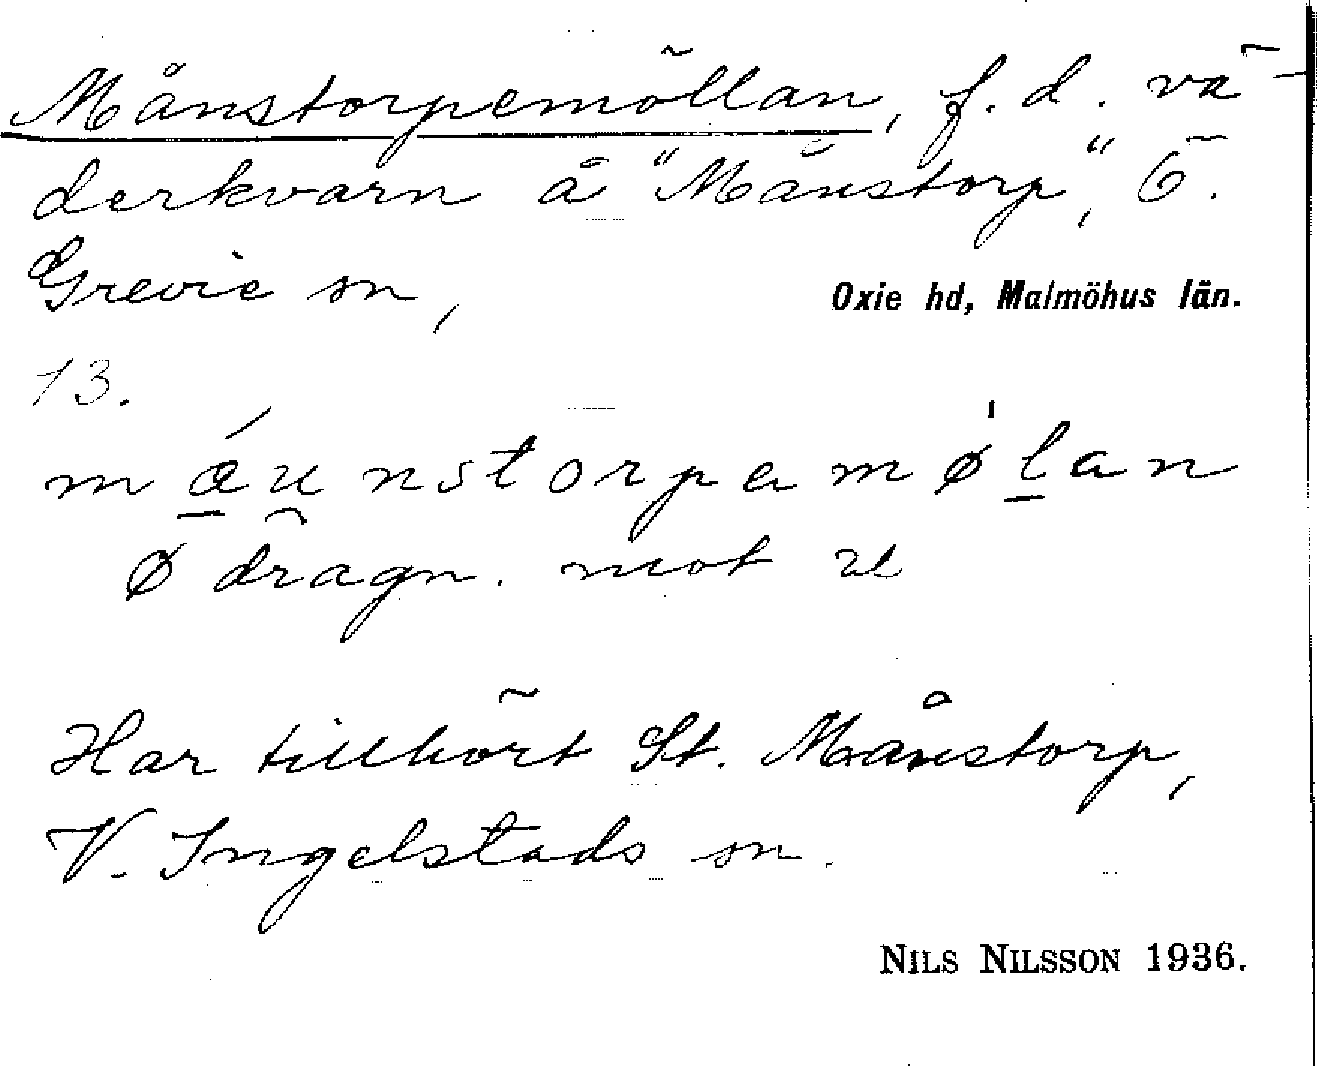 Månstorpemöllan, f. d. vä-
derkvarn å "Månstorp", Ö.
Grevie sn,
Oxie hd, Malmöhus län.
13.
mǽu nstorpa mø̍lan
ø dragn. mot u
Har tillhört St. Månstorp,
V. Ingelstads sn.
NILS NILSSON 1936.